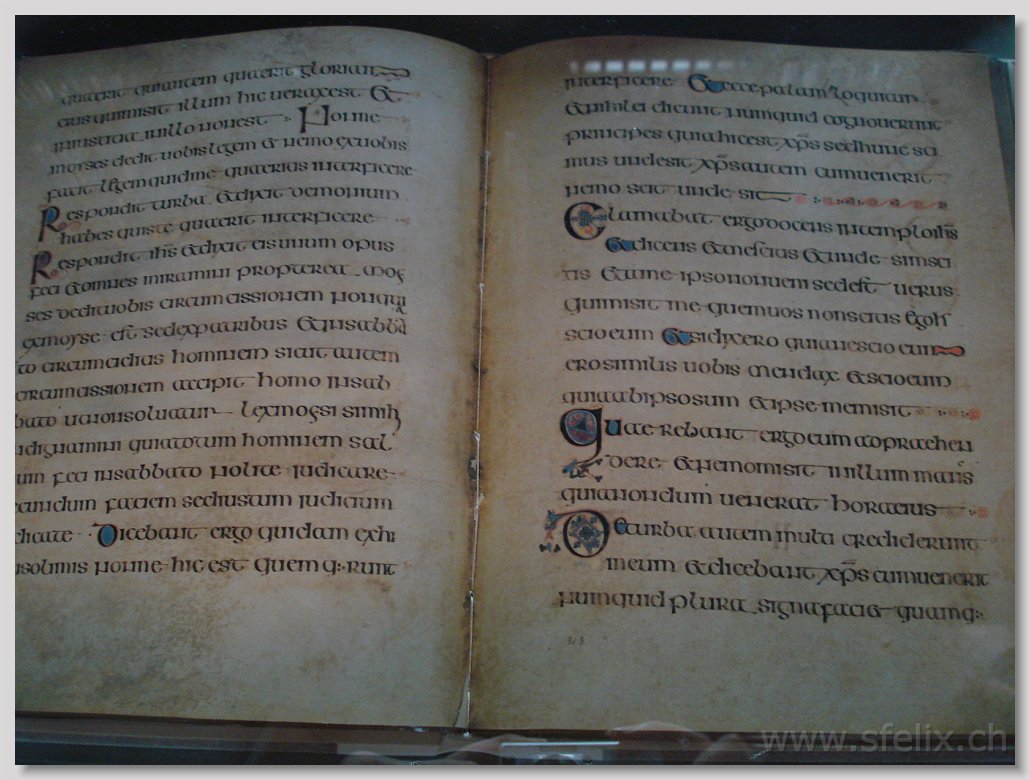 quaerit quiautem quaerit glorian
eius quimisit illum hic ueraxest Et
iniustitia inillo nonest Nonne
moyses dedit uobis legem & nemo exuobis
facit legem quidme quaeritis interficere
Respondit turba &dixit demonium
habes quiste quaerit interficere
Respondit ihs &dixit eis unum opus
feci &omnes miramini propterea mos
ses dedituobis circumcissionem nonqui
exmoyse est sedexpatribus &insabba
to circumciditis hominem siaut autem
circumcissionem accipit homo insab
bato utnonsoluatur lexmosi si mihi
indignamini quiatotum hominem sal
um feci insabbato nolite iudicare
secundum faciem sediustum iudicium
iudicate Dicebant ergo quidam exhi
rusolimis nonne hic est quem q:runt
interficere Etecce palam loquitur
&nihil ei dicunt numquid cognouerunt
principes quia hicest xps sedhunc sci
mus undesit xps autem cumuenerit
nemo scit unde sit
Clamabat ergo docens intemplo ihs
&dicens &mescitis &unde simsci
tis &ame ipso nonueni sedest uerus
quimisit me quemuos nonscitis Ego
scio eum &sidixero quianescio eum
ero similis uobis mendax &scio eum
quia abipso sum &ipse me misit
Quaerebant ergo eum adpraehen
dere &nemo misit inillum manus
quia nondum uenerat hora eius
Deturba autem multi crediderunt
ineum &dicebant xps cumuenerit
numquid plura signa faciet quam q:
313
www.sfelix.ch